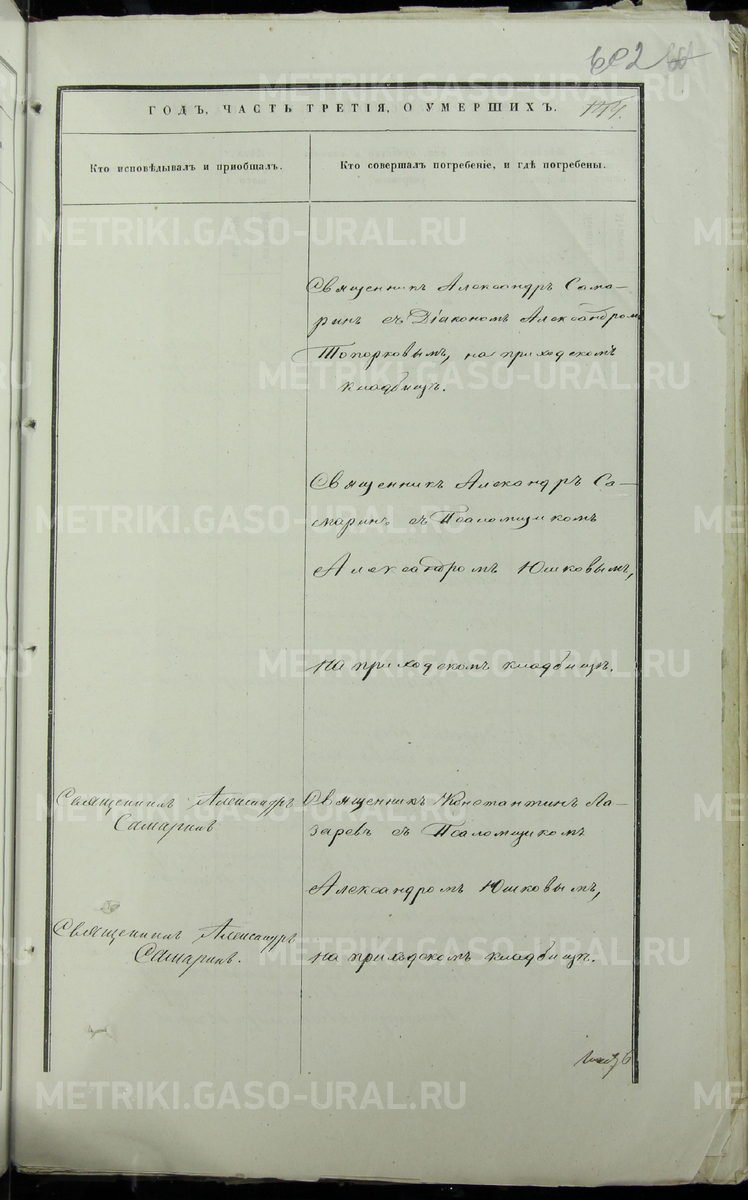 602
ГОДЪ, ЧАСТЬ ТРЕТІЯ, О УМЕРШИХЪ.
Кто исповѣдывалъ и пріобщалъ.
Кто совершалъ погребеніе, и гдѣ погребены.
METRIKI.GASO-URAL.RU
Священникъ Александръ Сама-
ринъ съ Діакономъ Александромъ
Топорковымъ, на приходскомъ
кладбищѣ.
Священникъ Александръ Са-
маринъ съ Псаломщикомъ
Александромъ Юшковымъ,
на приходскомъ кладбищѣ.
Священникъ Александръ
Самаринъ
Священникъ Константинъ Ла-
заревъ съ Псаломщикомъ
Александромъ Юшковымъ,
Священникъ Александръ
Самаринъ.
на приходскомъ кладбищѣ.